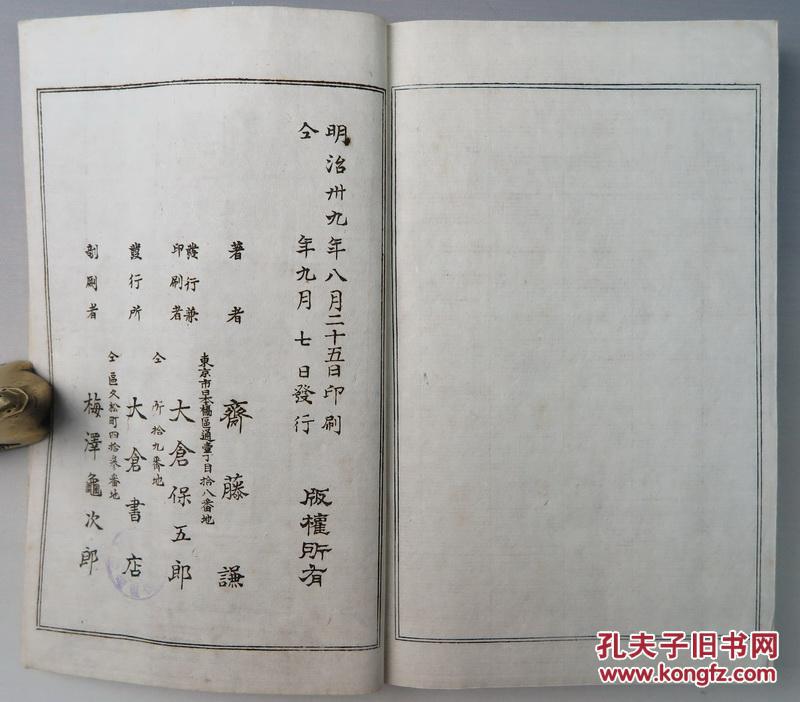 明治卅九年八月二十五日印刷
仝年九月七日發行
版權所有
著者 齋藤謙
東京市日本橋區通壹丁目拾八番地
發行兼印刷者 大倉保五郎
仝所拾九番地
發行所 大倉書店
仝區久松町四拾参番地
剞刷者 梅澤龜次郎
孔夫子旧书网
www.kongfz.com